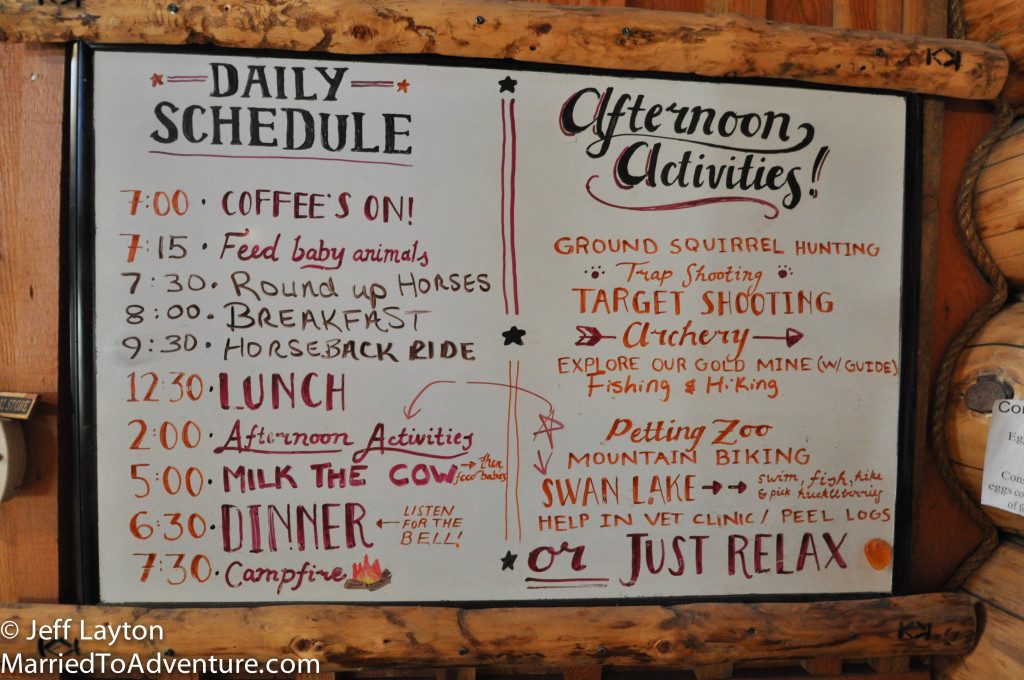 DAILY
SCHEDULE
7:00 · COFFEE'S ON!
7:15 · Feed baby animals
7:30 · Round up HORSES
8:00 · BREAKFAST
9:30 · HORSEBACK RIDE
12:30 · LUNCH
2:00 · Afternoon Activities
5:00 · MILK THE COW → then
feed babies
6:30 · DINNER ← LISTEN
FOR THE
BELL!
7:30 · Campfire
Afternoon
Activities!
GROUND SQUIRREL HUNTING
Trap Shooting
TARGET SHOOTING
Archery
EXPLORE OUR GOLD MINE (W/ GUIDE)
Fishing & Hiking
Petting Zoo
MOUNTAIN BIKING
SWAN LAKE → → swim, fish, hike
& pick huckleberries
HELP IN VET CLINIC / PEEL LOGS
or JUST RELAX
STORE
Co
Eg
Cons
eggs co
of f
© Jeff Layton
MarriedToAdventure.com